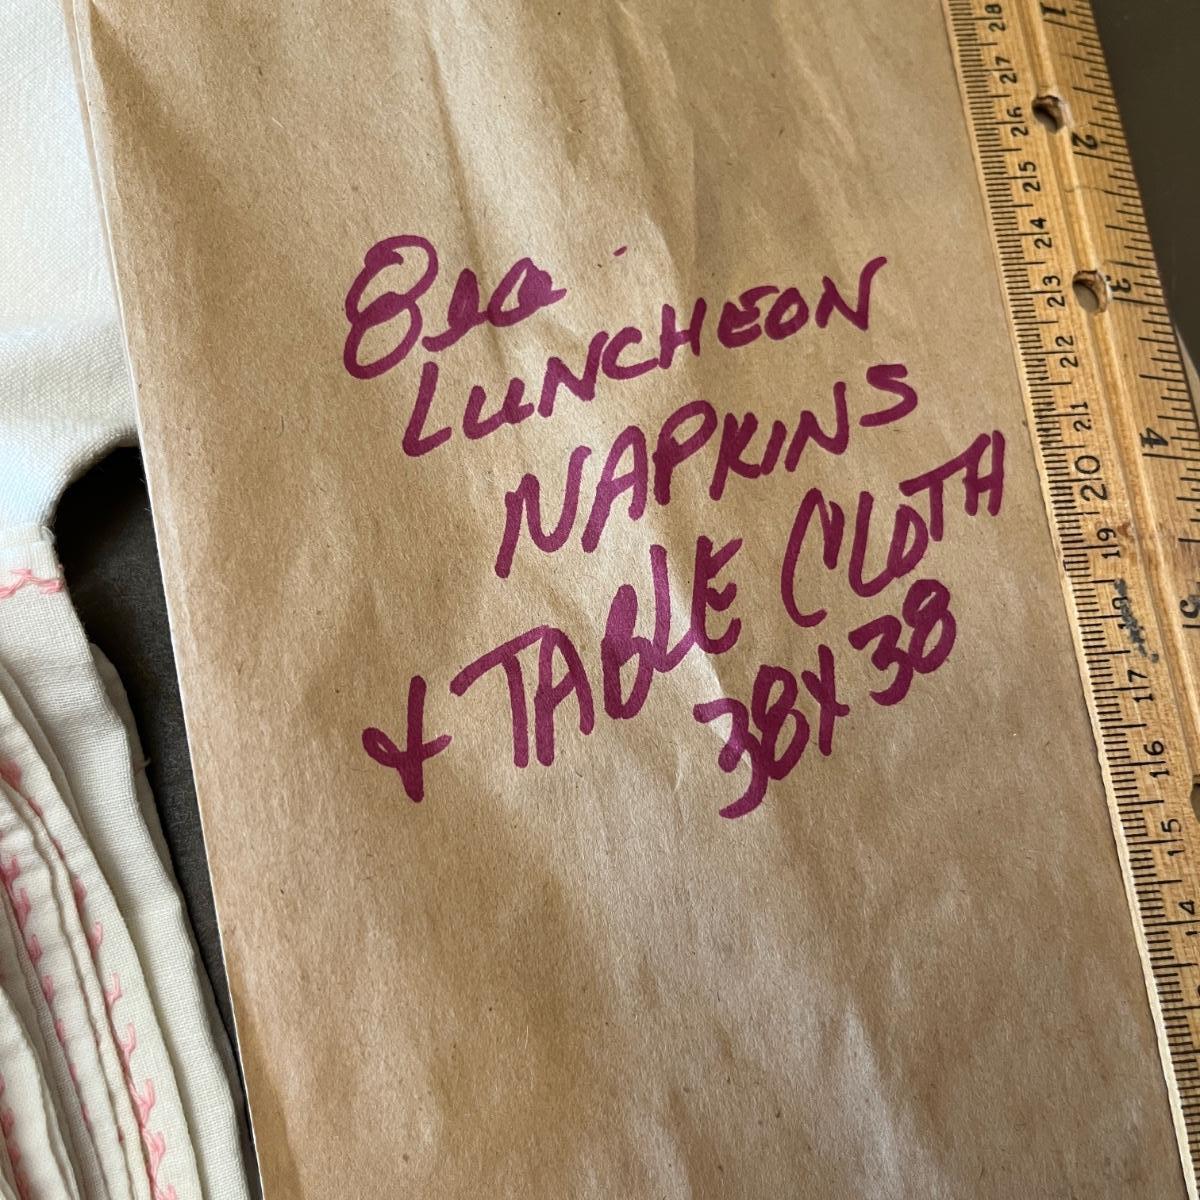 8ea
LUNCHEON
NAPKINS
& TABLE CLOTH
38X38
28 27 26 25 24 23 22 21 20 19 18 17 16 15 14
1 2 3 4 5